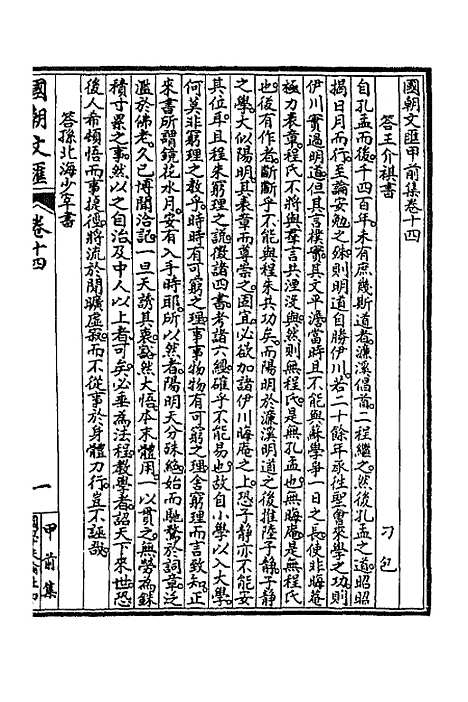 國朝文匯甲前集卷十四
刁包
答王介祺書
自孔孟而後千四百年未有庶幾斯道者濂溪倡首二程繼之然後孔孟之道昭昭
揭日月而行至論安勉之殊則明道自勝伊川若二十餘年承往聖會來學之功則
伊川實過明道但其言樸實其文平澹當時且不能與蘇學爭一日之長使非晦菴
極力表章程氏不將與羣言共湮沒與然則無程氏是無孔孟也無晦菴是無程氏
也後有作者斷斷乎不能與程朱共功矣而陽明於濂溪明道之後推陸子靜子靜
之學大似陽明其表章而尊崇之固宜必欲加諸伊川晦菴之上恐子靜亦不能安
其位耳且程朱窮理之說徵諸四書考諸六經確乎不能易也故自小學以入大學
何莫非窮理之教乎時時有可窮之理事事物物有可窮之理舍窮理而言致知正
來書所謂鏡花水月安有入手時耶所以然者陽明天分殊絕始而馳騖於詞章泛
濫於佛老久已博聞洽記一旦天誘其衷豁然大悟本末體用一以貫之無勞為銖
積寸累之事然以之自治及中人以上者可矣必垂為法程教學者詔天下來世恐
後人希頓悟而事捷徑將流於閒曠虛寂而不從事於身體力行豈不誣哉
答孫北海少宰書
國朝文匯
卷十四
一
甲前集